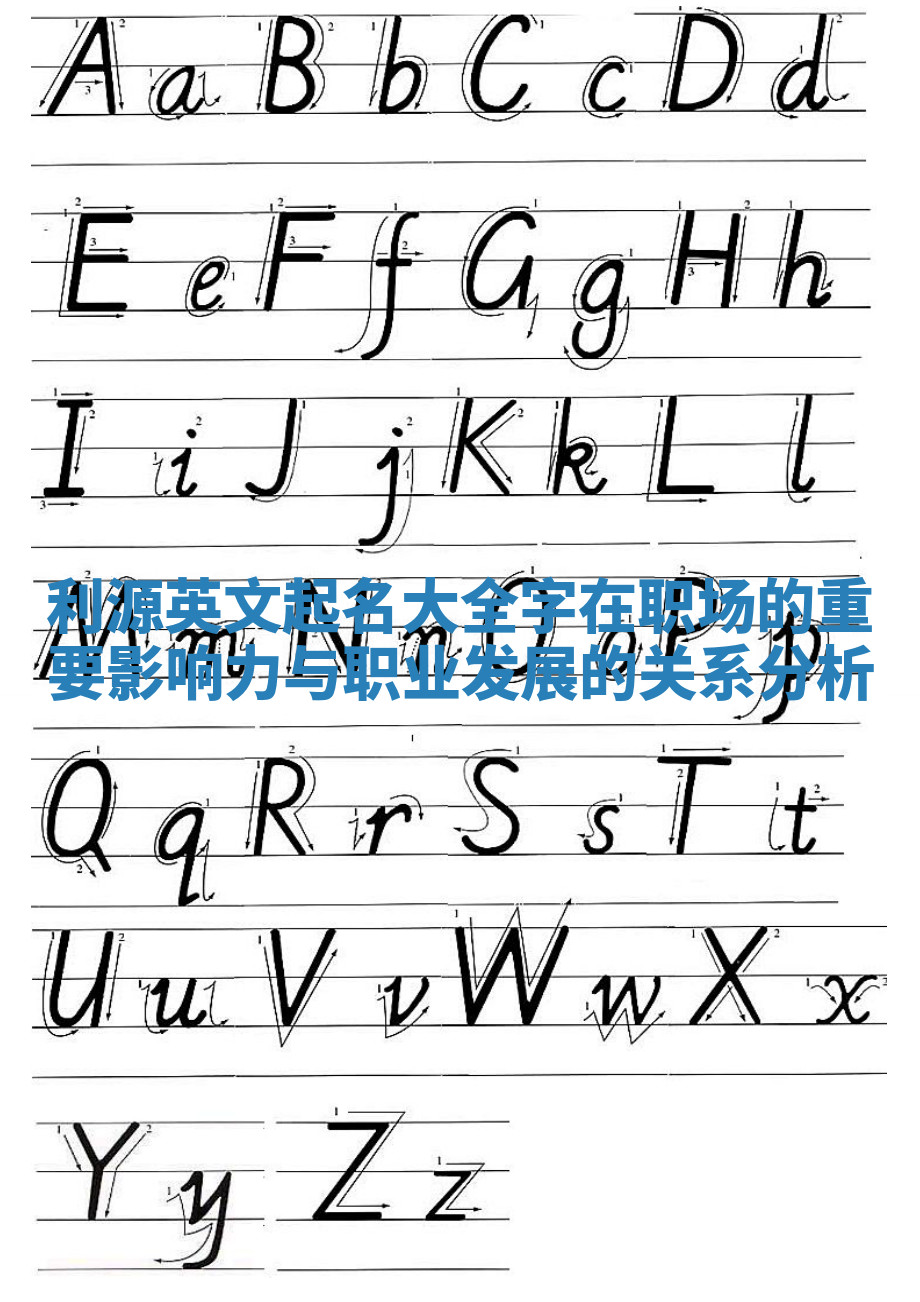 A a B b C c D d
E e F f G g H h
I i J j K k L l
M m N n O o P p
利源英文起名大全字在职场的重
要影响力与职业发展的关系分析
Q q R r S s T t
U u V v W w X x
Y y Z z